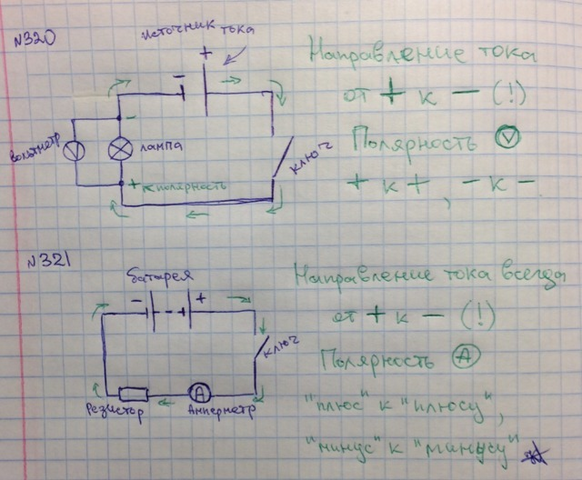 N320
источник тока
+
-
Направление тока
от + к - (!)
вольтметр
V
-
лампа
ключ
Полярность V
+ полярность
+ к +, - к -
N321
батарея
-
+
Направление тока всегда
от + к - (!)
ключ
Полярность A
Резистор
A
Амперметр
"плюс" к "плюсу",
"минус" к "минусу"